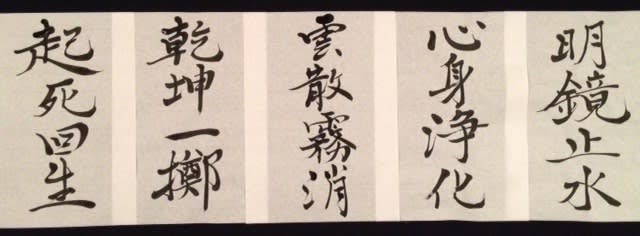 明鏡止水
心身浄化
雲散霧消
乾坤一擲
起死回生